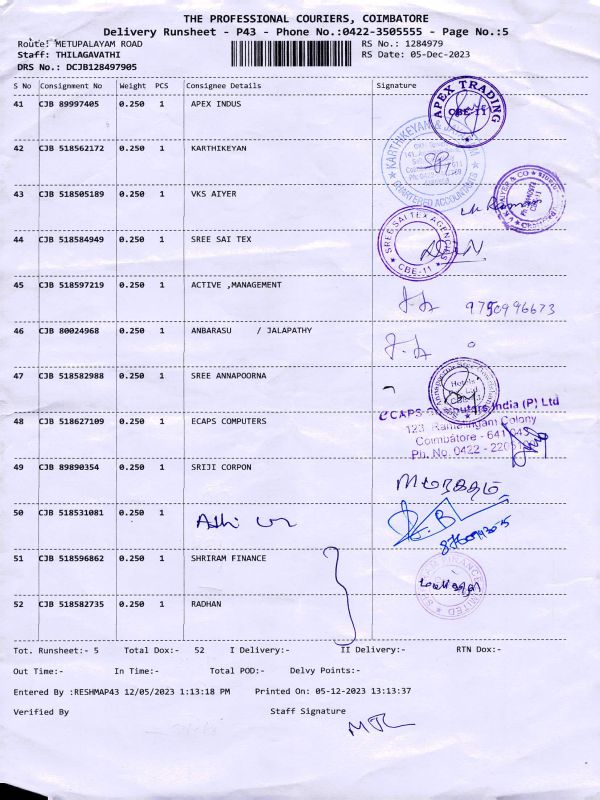 THE PROFESSIONAL COURIERS, COIMBATORE
Delivery Runsheet - P43 - Phone No.:0422-3505555 - Page No.:5
Route: METUPALAYAM ROAD RS No.: 1284979
Staff: THILAGAVATHI RS Date: 05-Dec-2023
DRS No.: DCJB128497905
S No Consignment No Weight PCS Consignee Details Signature
41 CJB 89997405 0.250 1 APEX INDUS
APEX TRADING CBE-11
42 CJB 518562172 0.250 1 KARTHIKEYAN
KARTHIKEYAN & CHARTERED ACCOUNTANTS
43 CJB 518505189 0.250 1 VKS AIYER
44 CJB 518584949 0.250 1 SREE SAI TEX
SREE SAI TEX AGENCIES CBE-11
45 CJB 518597219 0.250 1 ACTIVE ,MANAGEMENT
9750996673
46 CJB 80024968 0.250 1 ANBARASU / JALAPATHY
47 CJB 518582988 0.250 1 SREE ANNAPOORNA
Hotels
48 CJB 518627109 0.250 1 ECAPS COMPUTERS
ECAPS Computers India (P) Ltd
123, Ramalingam Colony
Coimbatore - 641
Ph. No. 0422 -
49 CJB 89890354 0.250 1 SRIJI CORPON
50 CJB 518531081 0.250 1
51 CJB 518596862 0.250 1 SHRIRAM FINANCE
52 CJB 518582735 0.250 1 RADHAN
Tot. Runsheet:- 5 Total Dox:- 52 I Delivery:- II Delivery:- RTN Dox:-
Out Time:- In Time:- Total POD:- Delvy Points:-
Entered By :RESHMAP43 12/05/2023 1:13:18 PM Printed On: 05-12-2023 13:13:37
Verified By Staff Signature